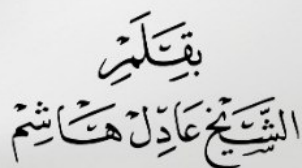 بِقَلَمِ
الشَّيْخ عَادِل هَاشِم